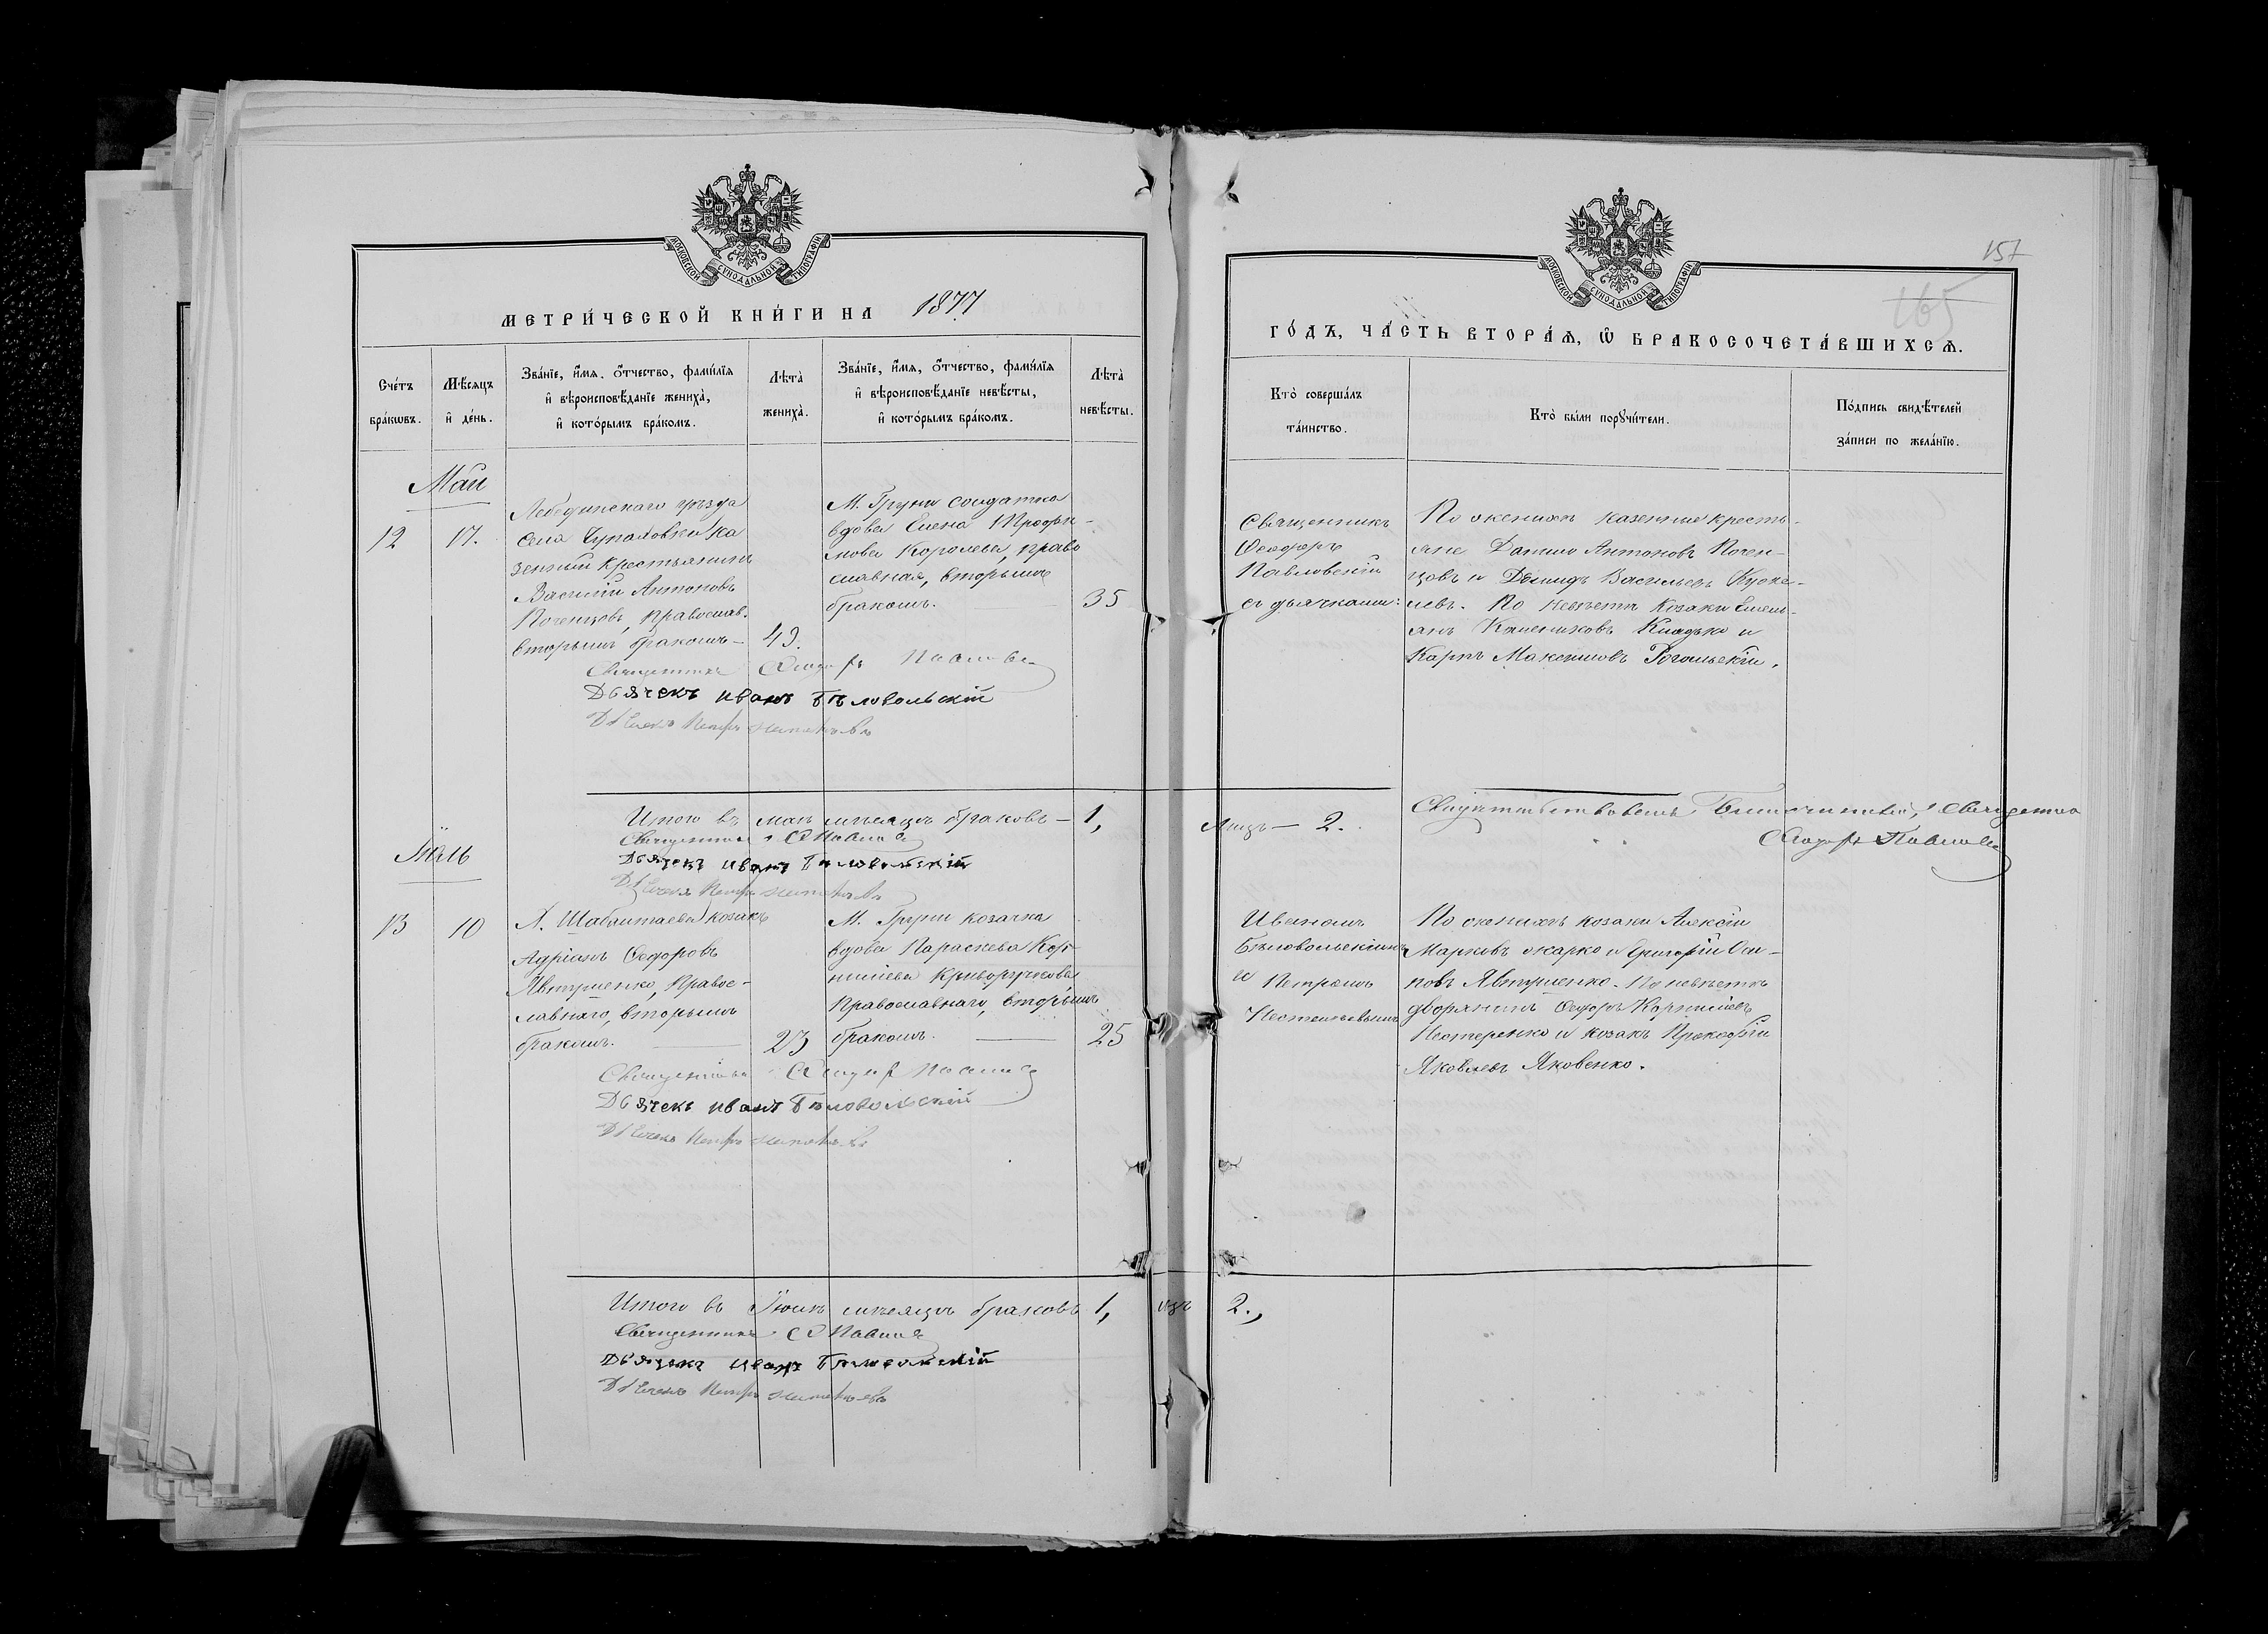 МОСКОВСКОЙ СѴНОДАЛЬНОЙ ТИПОГРАФІИ
МЕТРИ́ЧЕСКОЙ КНИ́ГИ НА 1877
Сче́тъ бра́кѡвъ.
Мѣ́сяцъ и҆ де́нь.
Зва́нїе, и҆́мя, ѻ҆́тчество, фами́лїя
и҆ вѣроисповѣ́данїе жениха̀,
и҆ кото́рымъ бра́комъ.
Лѣта̀ жениха̀.
Зва́нїе, и҆́мя, ѻ҆́тчество, фами́лїя
и҆ вѣроисповѣ́данїе невѣ́сты,
и҆ кото́рымъ бра́комъ.
Лѣта̀ невѣ́сты.
Май
12
17.
Лебединскаго уѣзда
села Чупаховки ка
зенный крестьянинъ
Василій Антоновъ
Поченцовъ, православ.
вторымъ бракомъ—
49.
М. Груни солдатка
вдова Елена
Королева, право
славная, вторымъ
бракомъ.
35
Священникъ Ѳеодоръ
Дьячекъ Иванъ Бѣловольскій
Дьячекъ Петръ
Итого въ маѣ мѣсяцѣ браковъ— 1,
Священникъ Ѳ
Дьячекъ Иванъ Бѣловольскій
Дьячекъ Петръ
13
10
Д. Шабалтаева козакъ
Адріанъ Ѳедоровъ
Явтушенко, Правос-
лавнаго, вторымъ
бракомъ.
23
М. Груни козачка
вдова Параскева Кор-
Криворучкова
Православнаго, вторымъ
бракомъ.
25
Священникъ Ѳеодоръ
Дьячекъ Иванъ Бѣловольскій
Дьячекъ Петръ
Итого въ мѣсяцѣ браковъ 1,
Священникъ Ѳ
Дьячекъ Иванъ Бѣловольскій
Дьячекъ Петръ
157
165
МОСКОВСКОЙ СѴНОДАЛЬНОЙ ТИПОГРАФІИ
ГО́ДЪ, ЧА́СТЬ ВТОРА́Я, Ѡ҆ БРАКОСОЧЕТА́ВШИХСЯ.
Кто̀ соверша́лъ
та́инство.
Кто̀ бы́ли порꙋчи́тели.
По́дпись свидѣ́телей
за́писи по жела́нїю.
Священникъ
Ѳеодоръ
Павловскій
съ дьячками:
По женихѣ казенные кресть-
яне Данило Антоновъ Почен-
цовъ и Демидъ Васильевъ
По невѣстѣ козаки Емель-
янъ Кладько и
Карпъ Максимовъ Рогольскій.
Лицъ— 2.
Свидѣтельствовалъ Благочинный, Священникъ
Ѳеодоръ
Иваномъ
Бѣловольскимъ
и Петромъ
По женихѣ козаки Алексій
Марковъ Жарко и Григорій Оси-
повъ Явтушенко. По невѣстѣ
дворянинъ Ѳедоръ Корниліевъ
Нестеренко и козакъ Прокофій
Яковлевъ Яковенко.
2.,